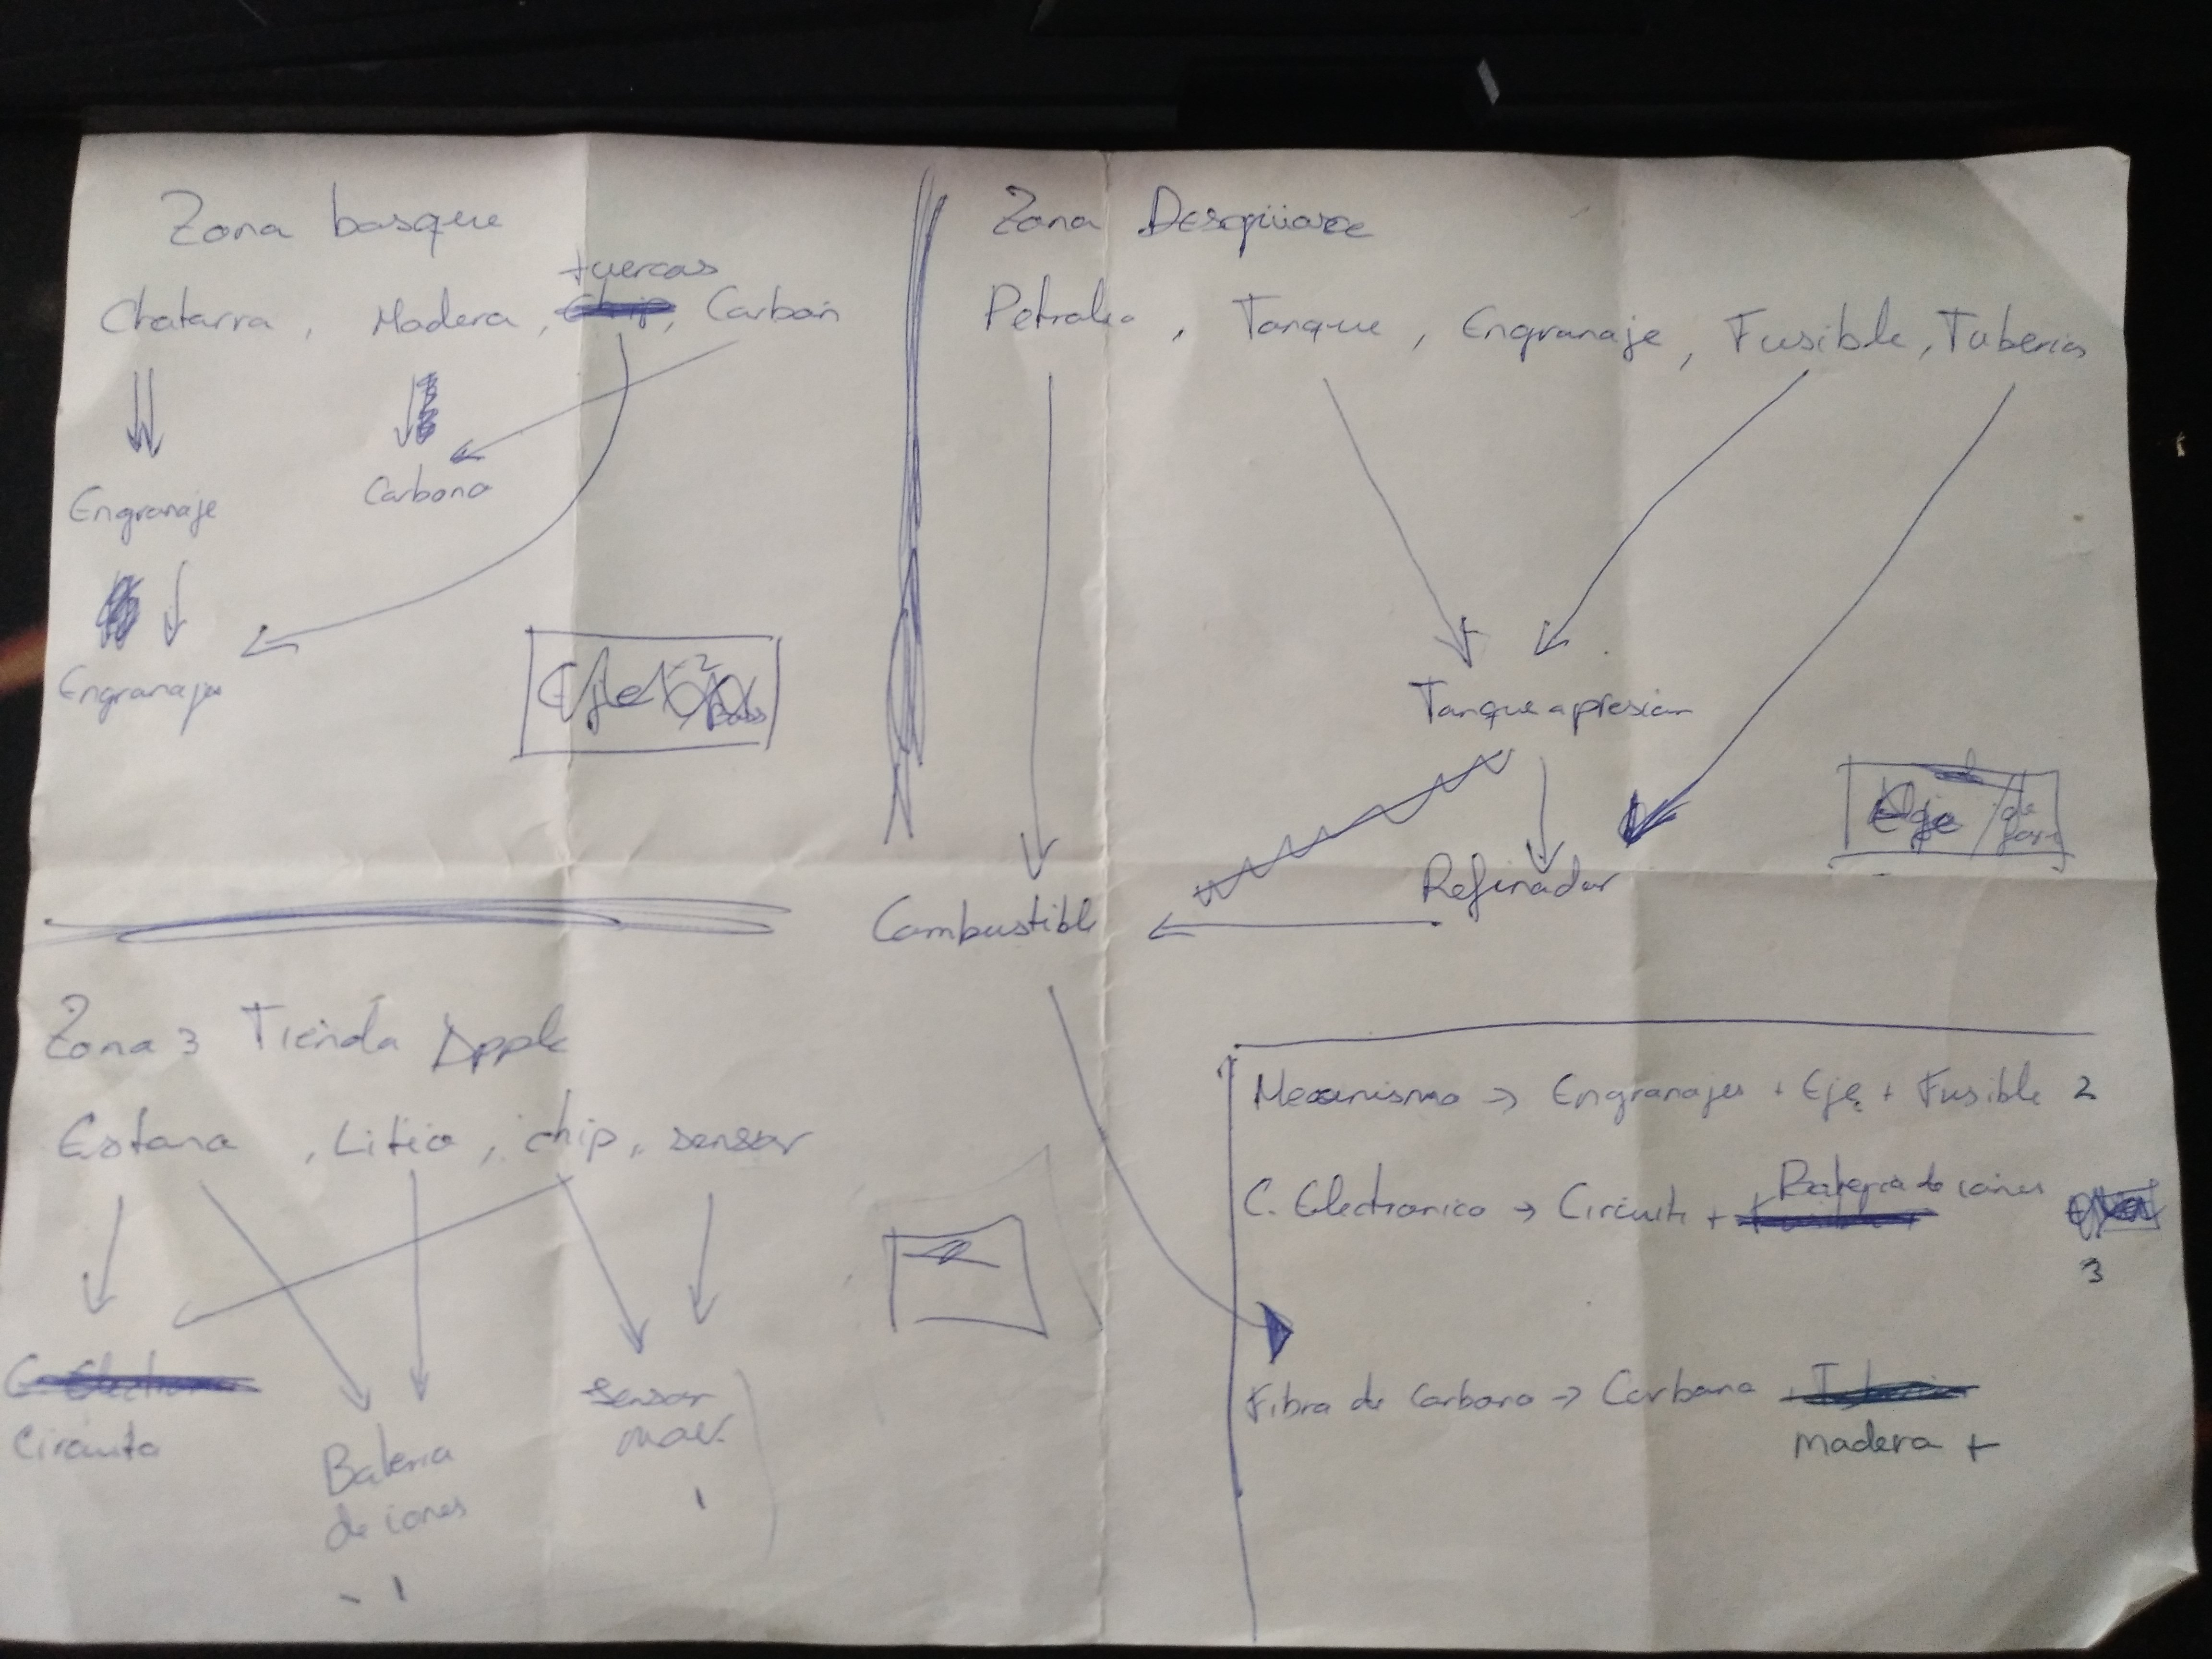 Zona bosque
tuercas
Chatarra, Madera, Chip, Carbón
Engranaje
Carbono
Engranajes
Zona Desgüace
Petroleo, Tanque, Engranaje, Fusible, Tuberias
Tanque a presion
Refinador
Combustible
Zona 3 Tienda Apple
Estano, Litio, chip, sensor
Circuito
Bateria
de iones
sensor
mov.
Mecanismo → Engranajes + Eje + Fusible 2
Bateria de iones
C. Electronico → Circuito +
3
Fibra de Carbono → Carbono
Madera +